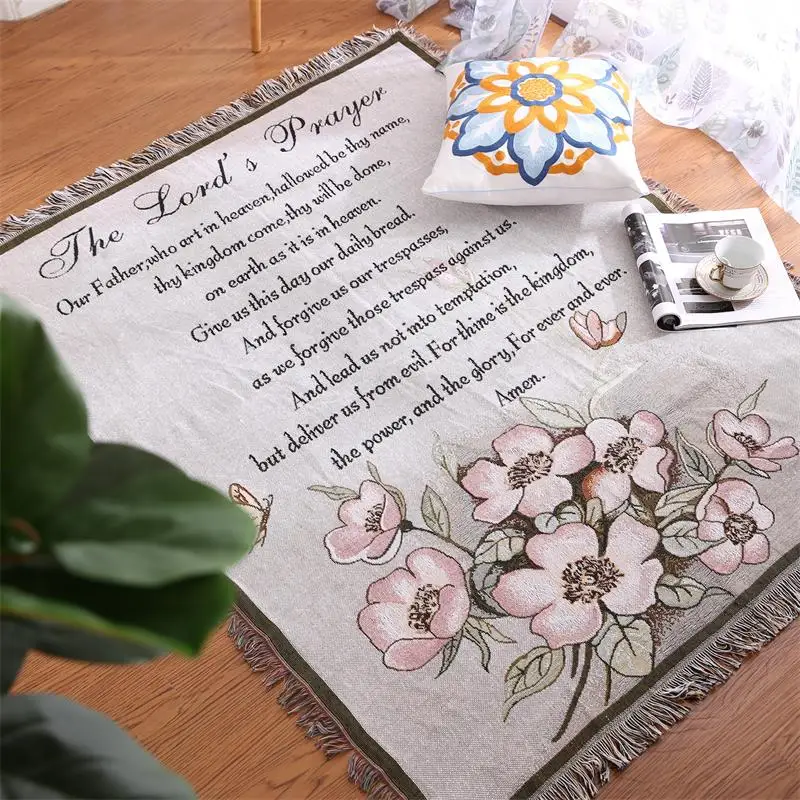 The Lord's Prayer
Our Father,who art in heaven,hallowed be thy name,
thy kingdom come,thy will be done,
on earth as it is in heaven.
Give us this day our daily bread.
And forgive us our trespasses,
as we forgive those trespass against us.
And lead us not into temptation,
but deliver us from evil. For thine is the kingdom,
the power, and the glory, For ever and ever.
Amen.